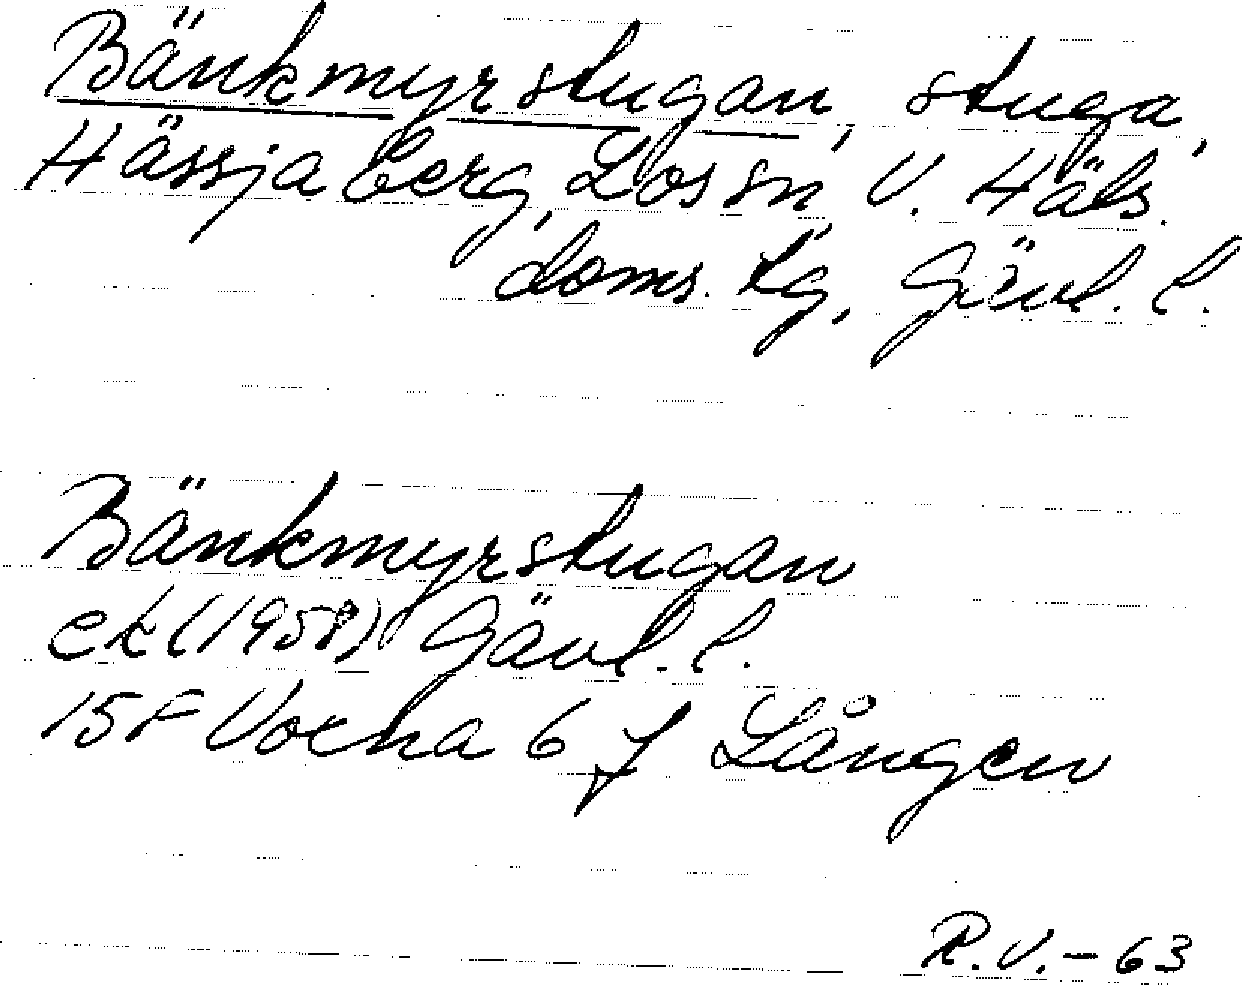 Bänkmyrstugan, stuga,
Hässjaberg, Los sn, V. Häls.
doms. tg, Gävl. l.
Bänkmyrstugan
ek (1958) Gävl. l.
15F Voxna 6 f Lången
R.V.-63